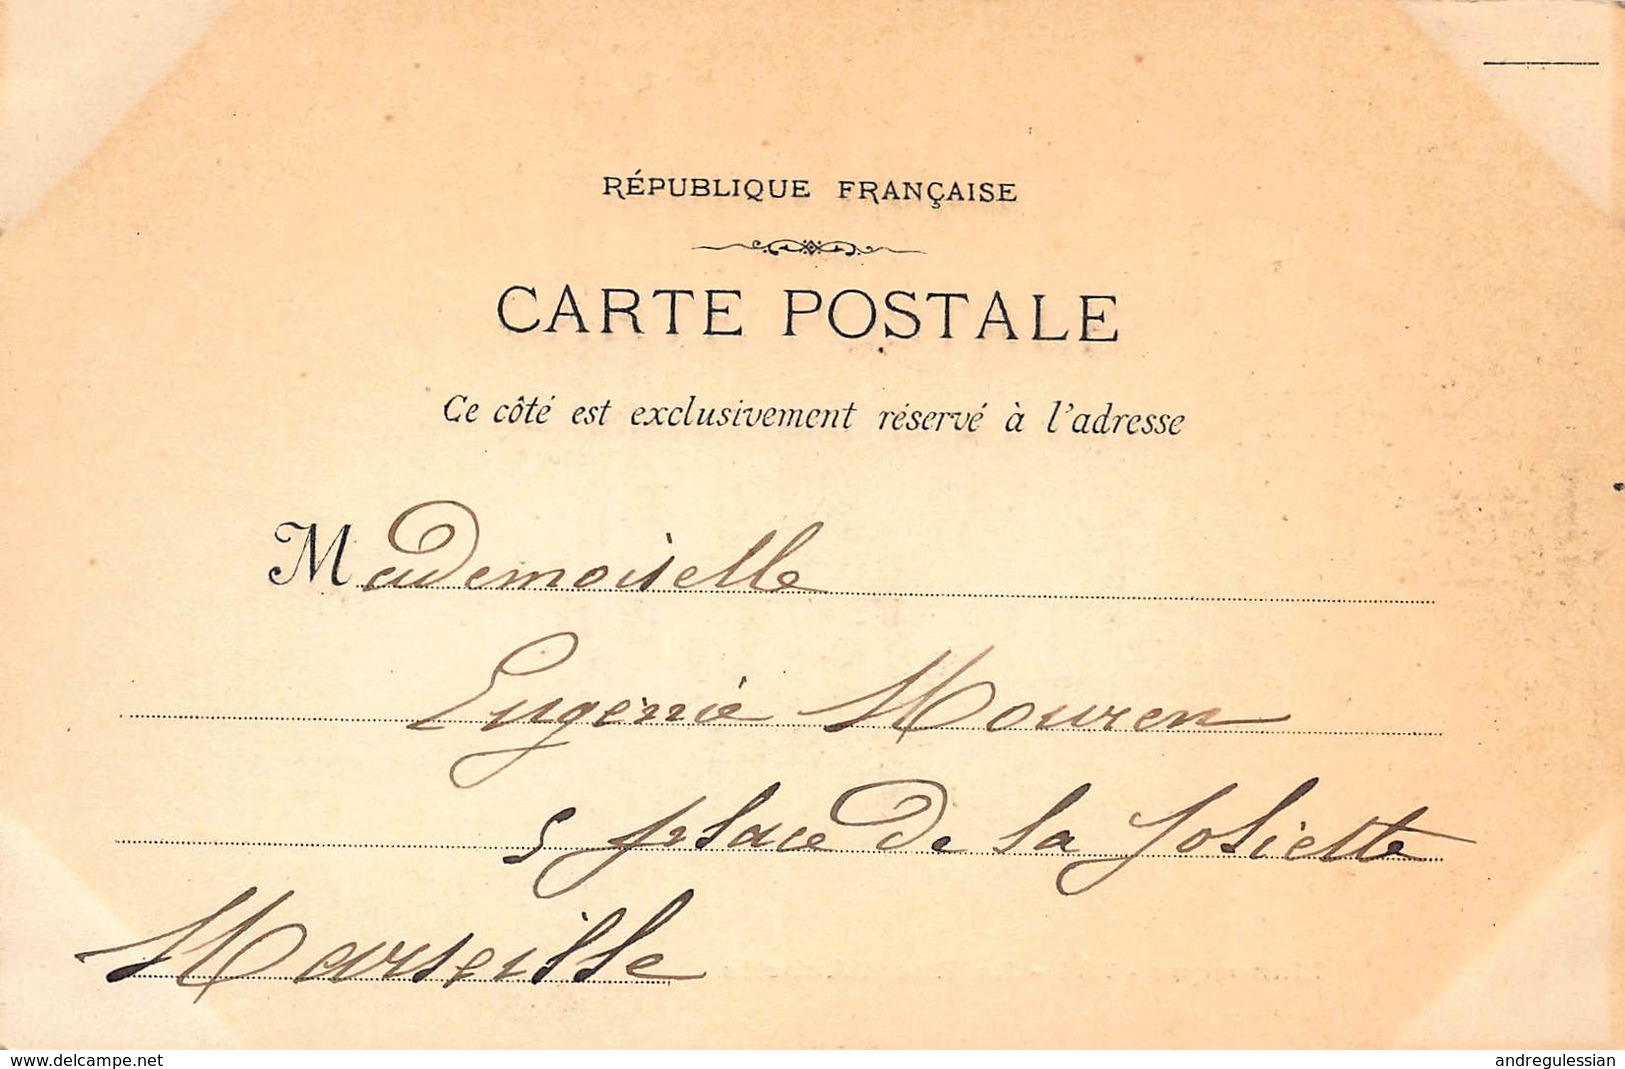 RÉPUBLIQUE FRANÇAISE
CARTE POSTALE
Ce côté est exclusivement réservé à l'adresse
Mademoiselle
Eugénie Mouren
5 place de la Joliette
Marseille
www.delcampe.net
andregulessian